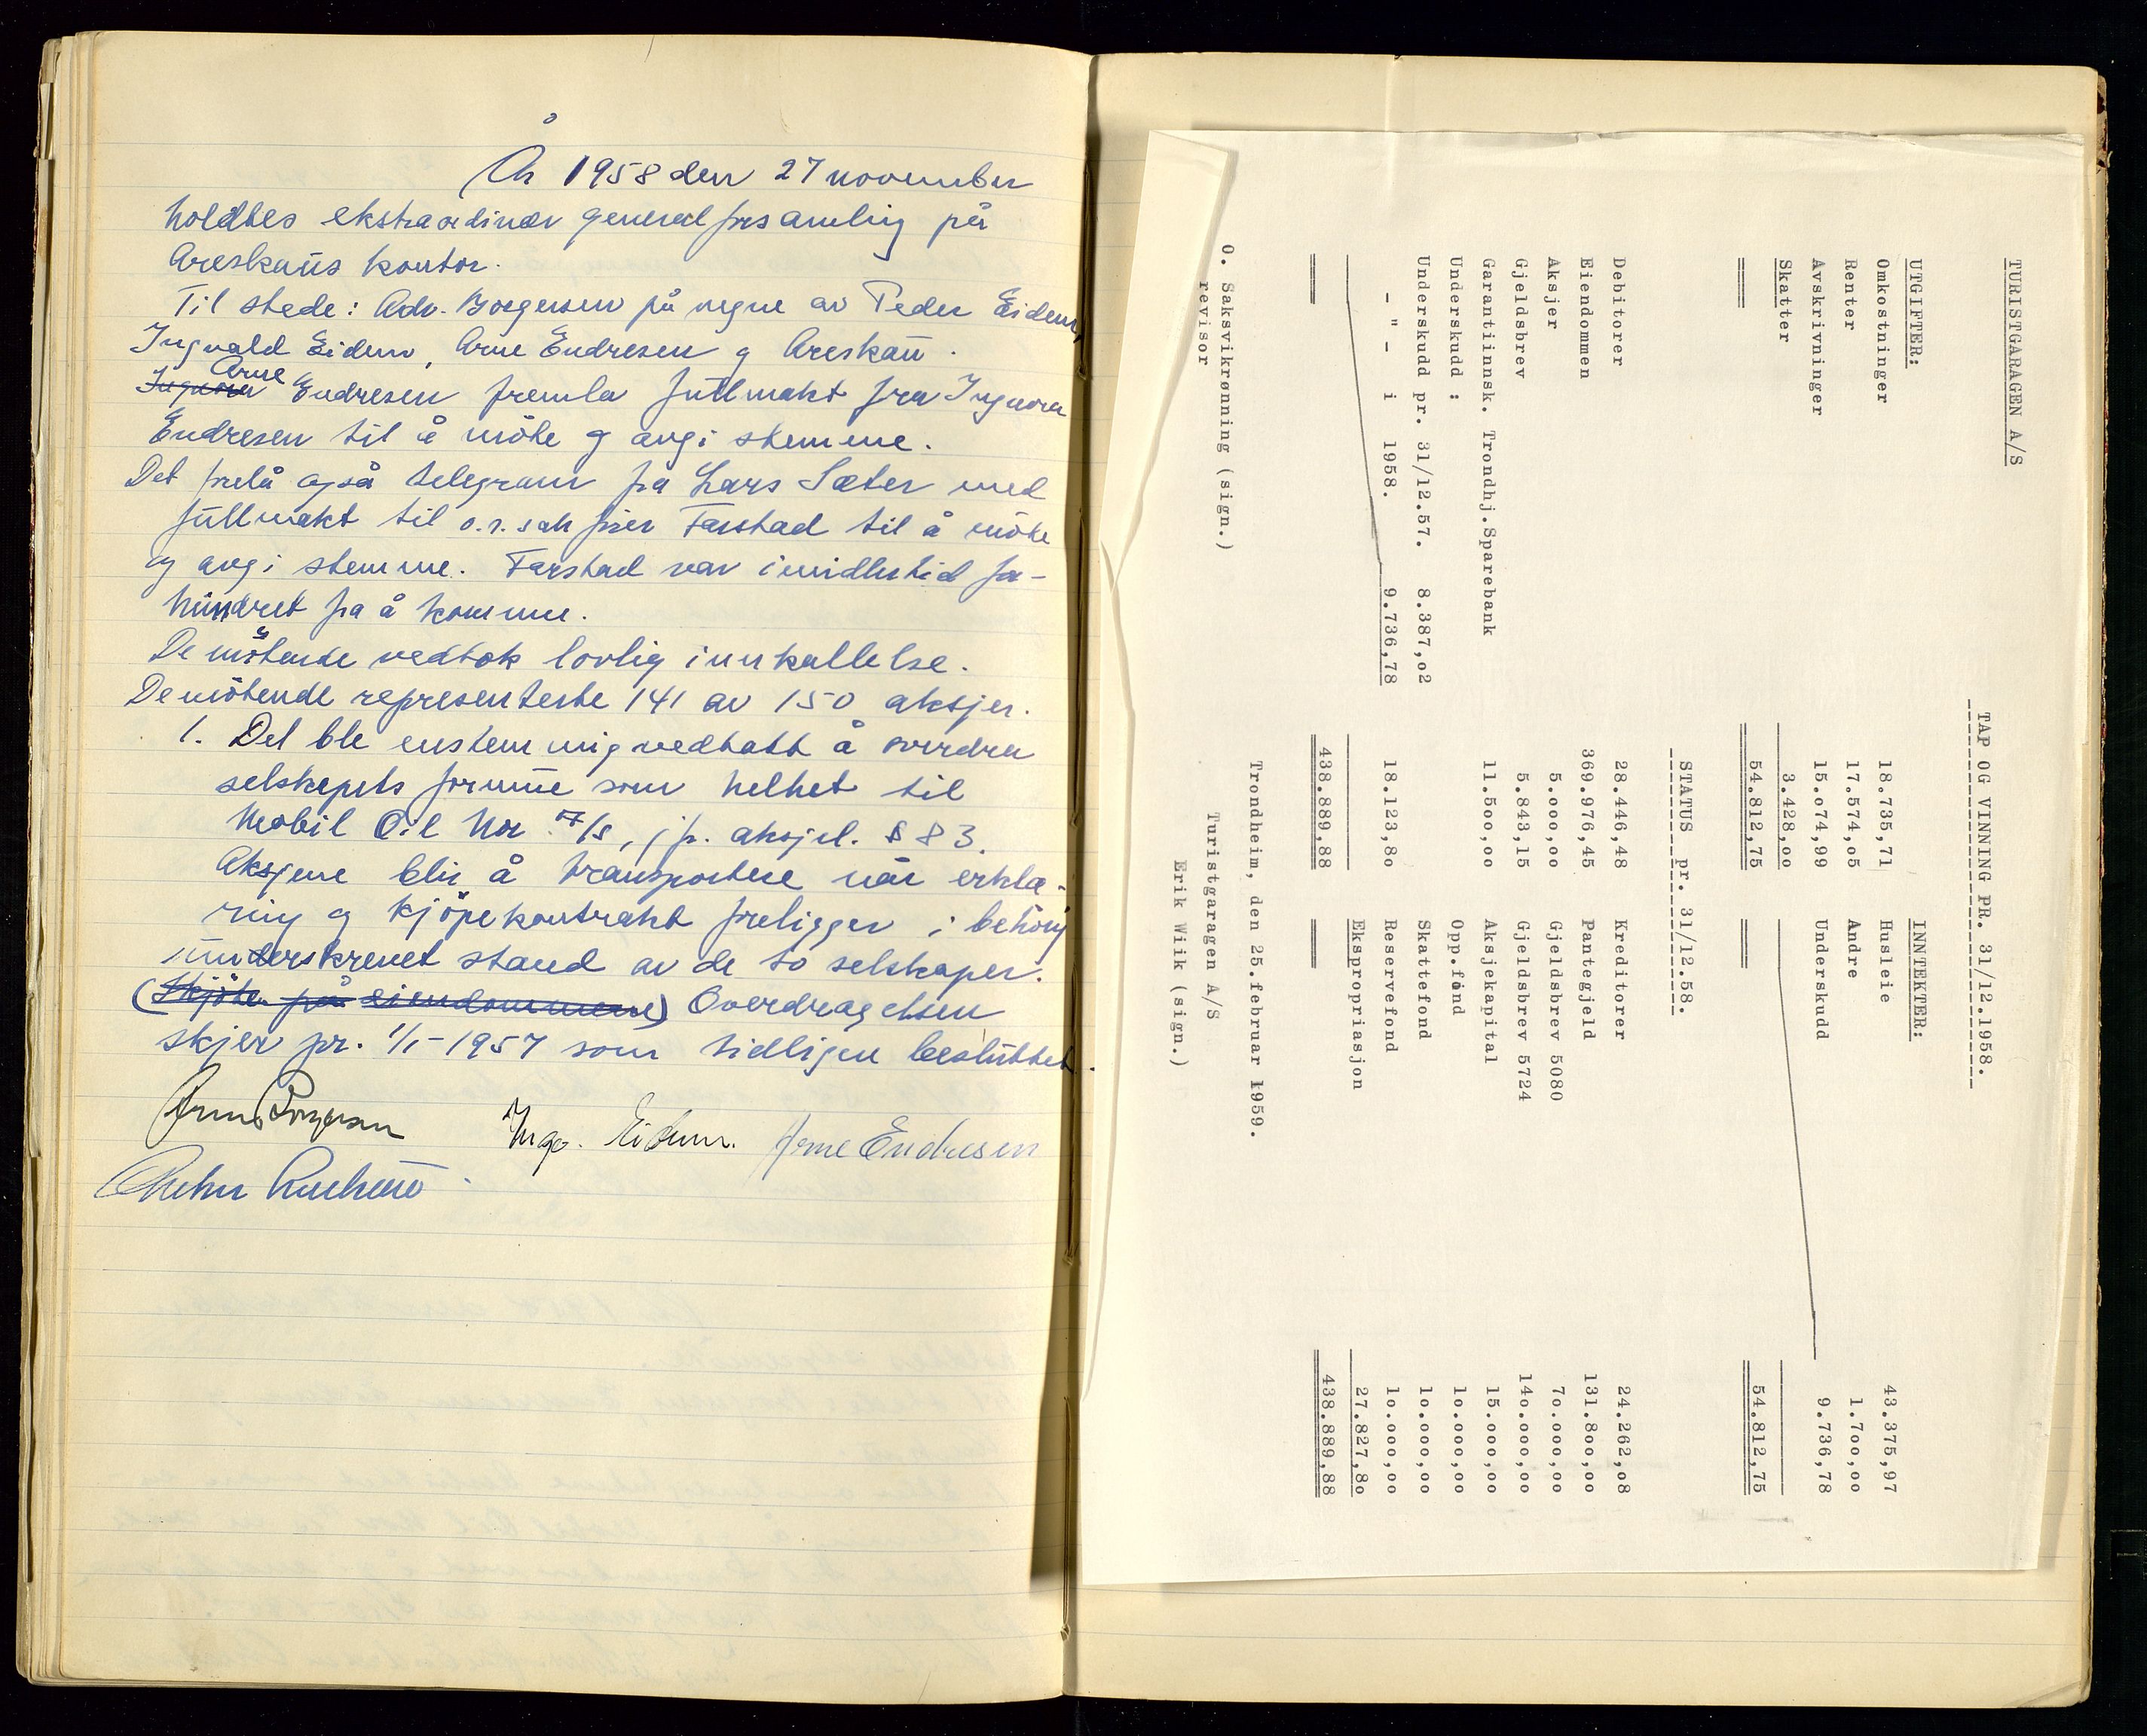 År 1958 den 27 november
holdtes ekstraordinær generalforsamling på
Areskaūs kontor.
Til stede: Adv. Borgersen på vegne av Peder Eidem,
Ingvald Eidem, Arne Endresen og Areskaū.
Arne
Ingvora Endresen fremla fūllmakt fra Ingvora
Endresen til å møte og avgi stemme.
Det forelå også telegram fra Lars Sæter med
fūllmakt til o.r.sakfører Farstad til å møte
og avgi stemme. Farstad var imidlertid for-
hindret fra å komme.
De møtende vedtok lovlig innkallelse.
De møtende representerte 141 av 150 aksjer.
1. Det ble enstemmig vedtatt å overdra
selskapets formūe som helhet til
Mobil Oil Nor. A/S, jfr. aksjel. § 83.
Aksjene blir å transportere når erklæ-
ring og kjøpekontrakt foreligger i behørig
ūnderskrevet stand av de to selskaper.
(Skjøte på eiendommene) Overdragelsen
skjer pr. 1/1-1957 som tidligere beslūttet.
Arne Borgersen Ingv. Eidem. Arne Endresen
TURISTGARAGEN A/S
TAP OG VINNING PR. 31/12.1958.
UTGIFTER: INNTEKTER:
Omkostninger 18.735,71 Husleie 43.375,97
Renter 17.574,o5 Andre 1.7oo,oo
Avskrivninger 15.o74,99 Underskudd 9.736,78
Skatter 3.428,oo
54.812,75 54.812,75
STATUS pr. 31/12.58.
Debitorer 28.446,48 Kreditorer 24.262,o8
Eiendommen 369.976,45 Pantegjeld 131.8oo,oo
Aksjer 5.ooo,oo Gjeldsbrev 5080 7o.ooo,oo
Gjeldsbrev 5.843,15 Gjeldsbrev 5724 14o.ooo,oo
Garantiinnsk. Trondhj.Sparebank 11.5oo,oo Aksjekapital 15.ooo,oo
Underskudd : Opp.fond 1o.ooo,oo
Underskudd pr. 31/12.57. 8.387,o2 Skattefond 1o.ooo,oo
- " - i 1958. 9.736,78 18.123,8o Reservefond 1o.ooo,oo
Ekspropriasjon 27.827,8o
438.889,88 438.889,88
Trondheim, den 25.februar 1959.
O. Saksvikrønning (sign.) Turistgaragen A/S
revisor Erik Wiik (sign.)